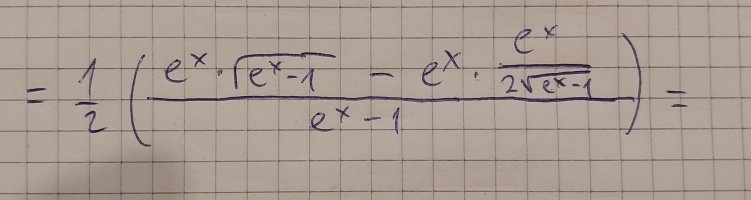 = \frac{1}{2} \left( \frac{e^x \cdot \sqrt{e^x - 1} - e^x \cdot \frac{e^x}{2\sqrt{e^x - 1}}}{e^x - 1} \right) =